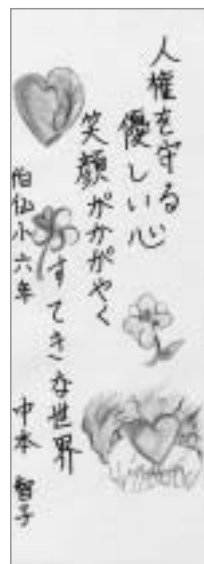 人権を守る
優しい心
笑顔がかがやく
すてきな世界
伯仙小六年
中本 智子